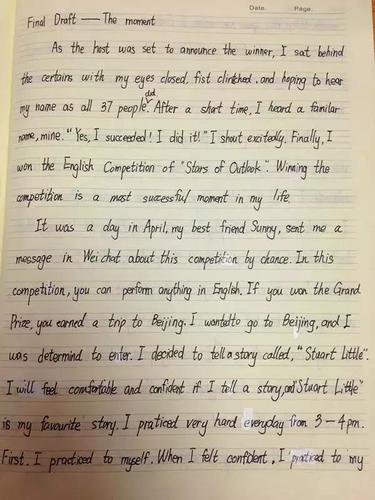 Date.    Page.
Final Draft — The moment
As the host was set to announce the winner, I sat behind
the certains with my eyes closed, fist clintched, and hoping to hear
my name as all 37 people did. After a short time, I heard a familar
name, mine. "Yes, I succeeded! I did it!" I shout excitedly. Finally, I
won the English Competition of "Stars of Outlook". Winning the
competition is a most successful moment in my life.
It was a day in April, my best friend Sunny, sent me a
message in Wei chat about this competition by chance. In this
competition, you can perform anything in English. If you won the Grand
Prize, you earned a trip to Beijing. I wanted to go to Beijing, and I
was determind to enter. I decided to tell a story called, "Stuart Little".
I will feel comfortable and confident if I tell a story, and "Stuart Little"
is my favourite story. I praticed very hard everyday from 3-4pm.
First. I practiced to myself. When I felt confident, I praticed to my